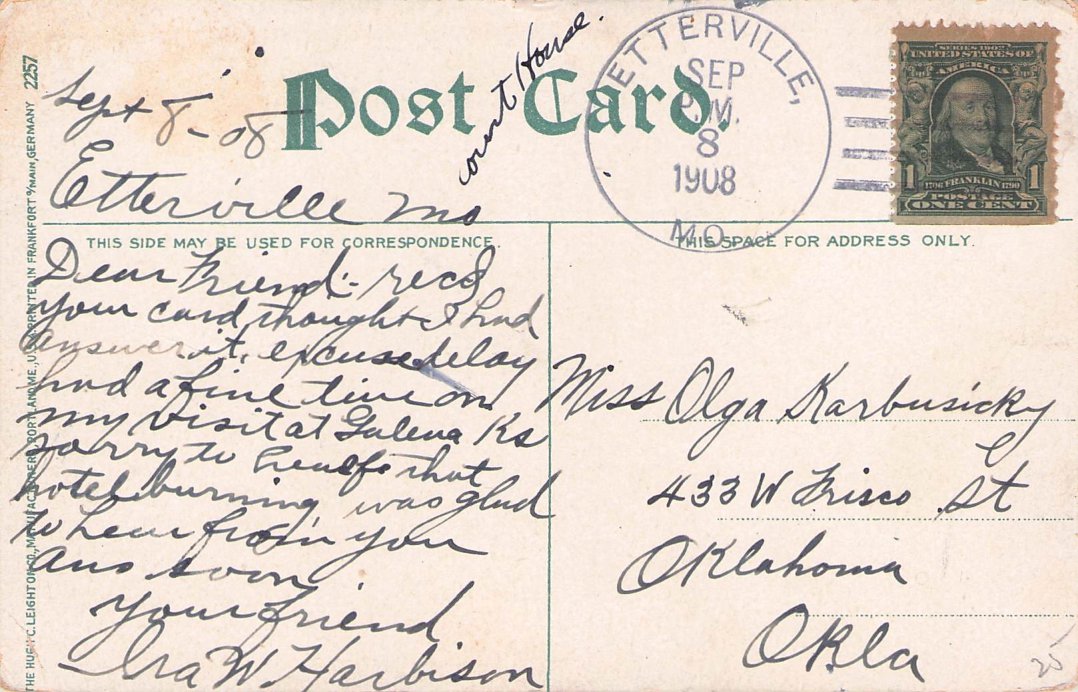 Post Card.
court House.
ETTERVILLE,
SEP
P.M.
8
1908
MO.
SERIES 1902
UNITED STATES OF
AMERICA
1 1706 FRANKLIN 1790 1
POSTAGE
ONE CENT
Sept 8 - 08
Etterville Mo
THIS SIDE MAY BE USED FOR CORRESPONDENCE.
THIS SPACE FOR ADDRESS ONLY.
Dear Friend:- recd
your card, thought I had
answer it, excuse delay
had a fine time on
my visit at Galena Ks
sorry to hear of that
hotel burning was glad
to hear from you
ans soon
your friend
Ira W Harbison
Miss Olga Karbusicky
433 W Frisco St
Oklahoma
Okla
25
THE HUGH C. LEIGHTON CO., MANUFACTURERS, PORTLAND, ME., U.S.A. PRINTED IN FRANKFORT o/MAIN, GERMANY 2257